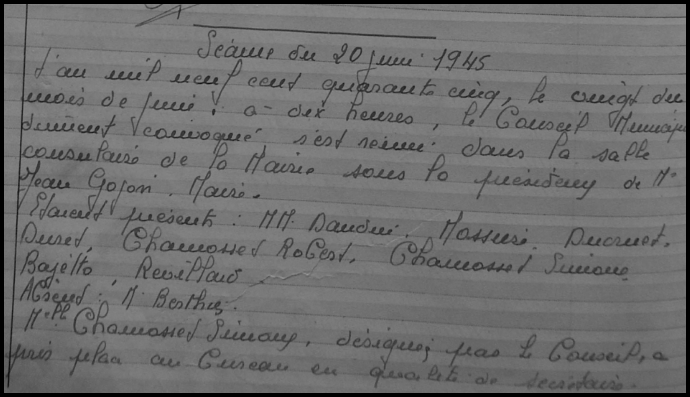 Séance du 20 juin 1945
L'an mil neuf cent quarante cinq, le vingt du
mois de juin, à dix heures, le Conseil Municipal
dûment convoqué s'est réuni dans la salle
consulaire de la Mairie sous la présidence de Mr
Jean Gojon. Maire.
Etaient présents : MM. Daudin. Massuré. Ducruet.
Duret. Chamosset Robert. Chamosset Simone
Bajetto Revillard
Absent : M. Berthin.
Melle Chamosset Simone, désignée par le Conseil, a
pris place au bureau en qualité de secrétaire.